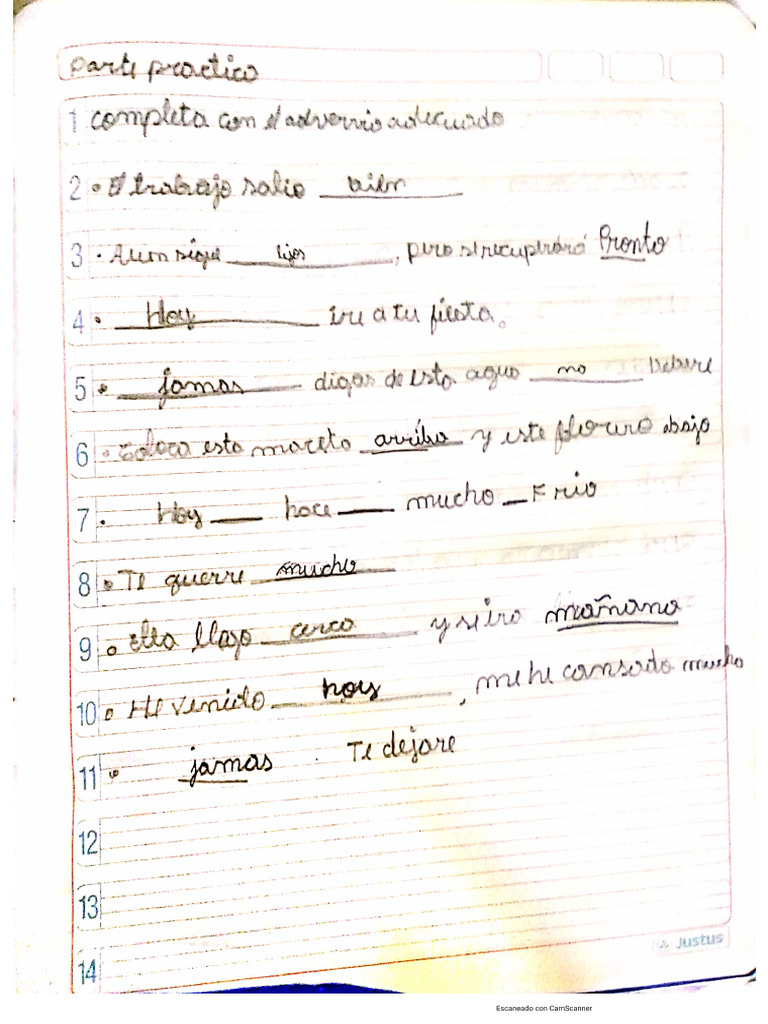 parte practico
1 completa con el advervio adecuado
2 • El trabajo salio bien
3 • Aun sigue lejos, pero se recuperará Pronto
4 • Hoy ire a tu fiesta.
5 • jamas digas de esta agua no bebere
6 • Coloca esta maceta arriba y este florero abajo
7 • Hoy hace mucho Frio
8 • Te querre mucho
9 • Ella llego cerca y se ira mañana
10 • He venido hoy, me he cansado mucho
11 • jamas. Te dejare
12
13
14
Justus
Escaneado con CamScanner